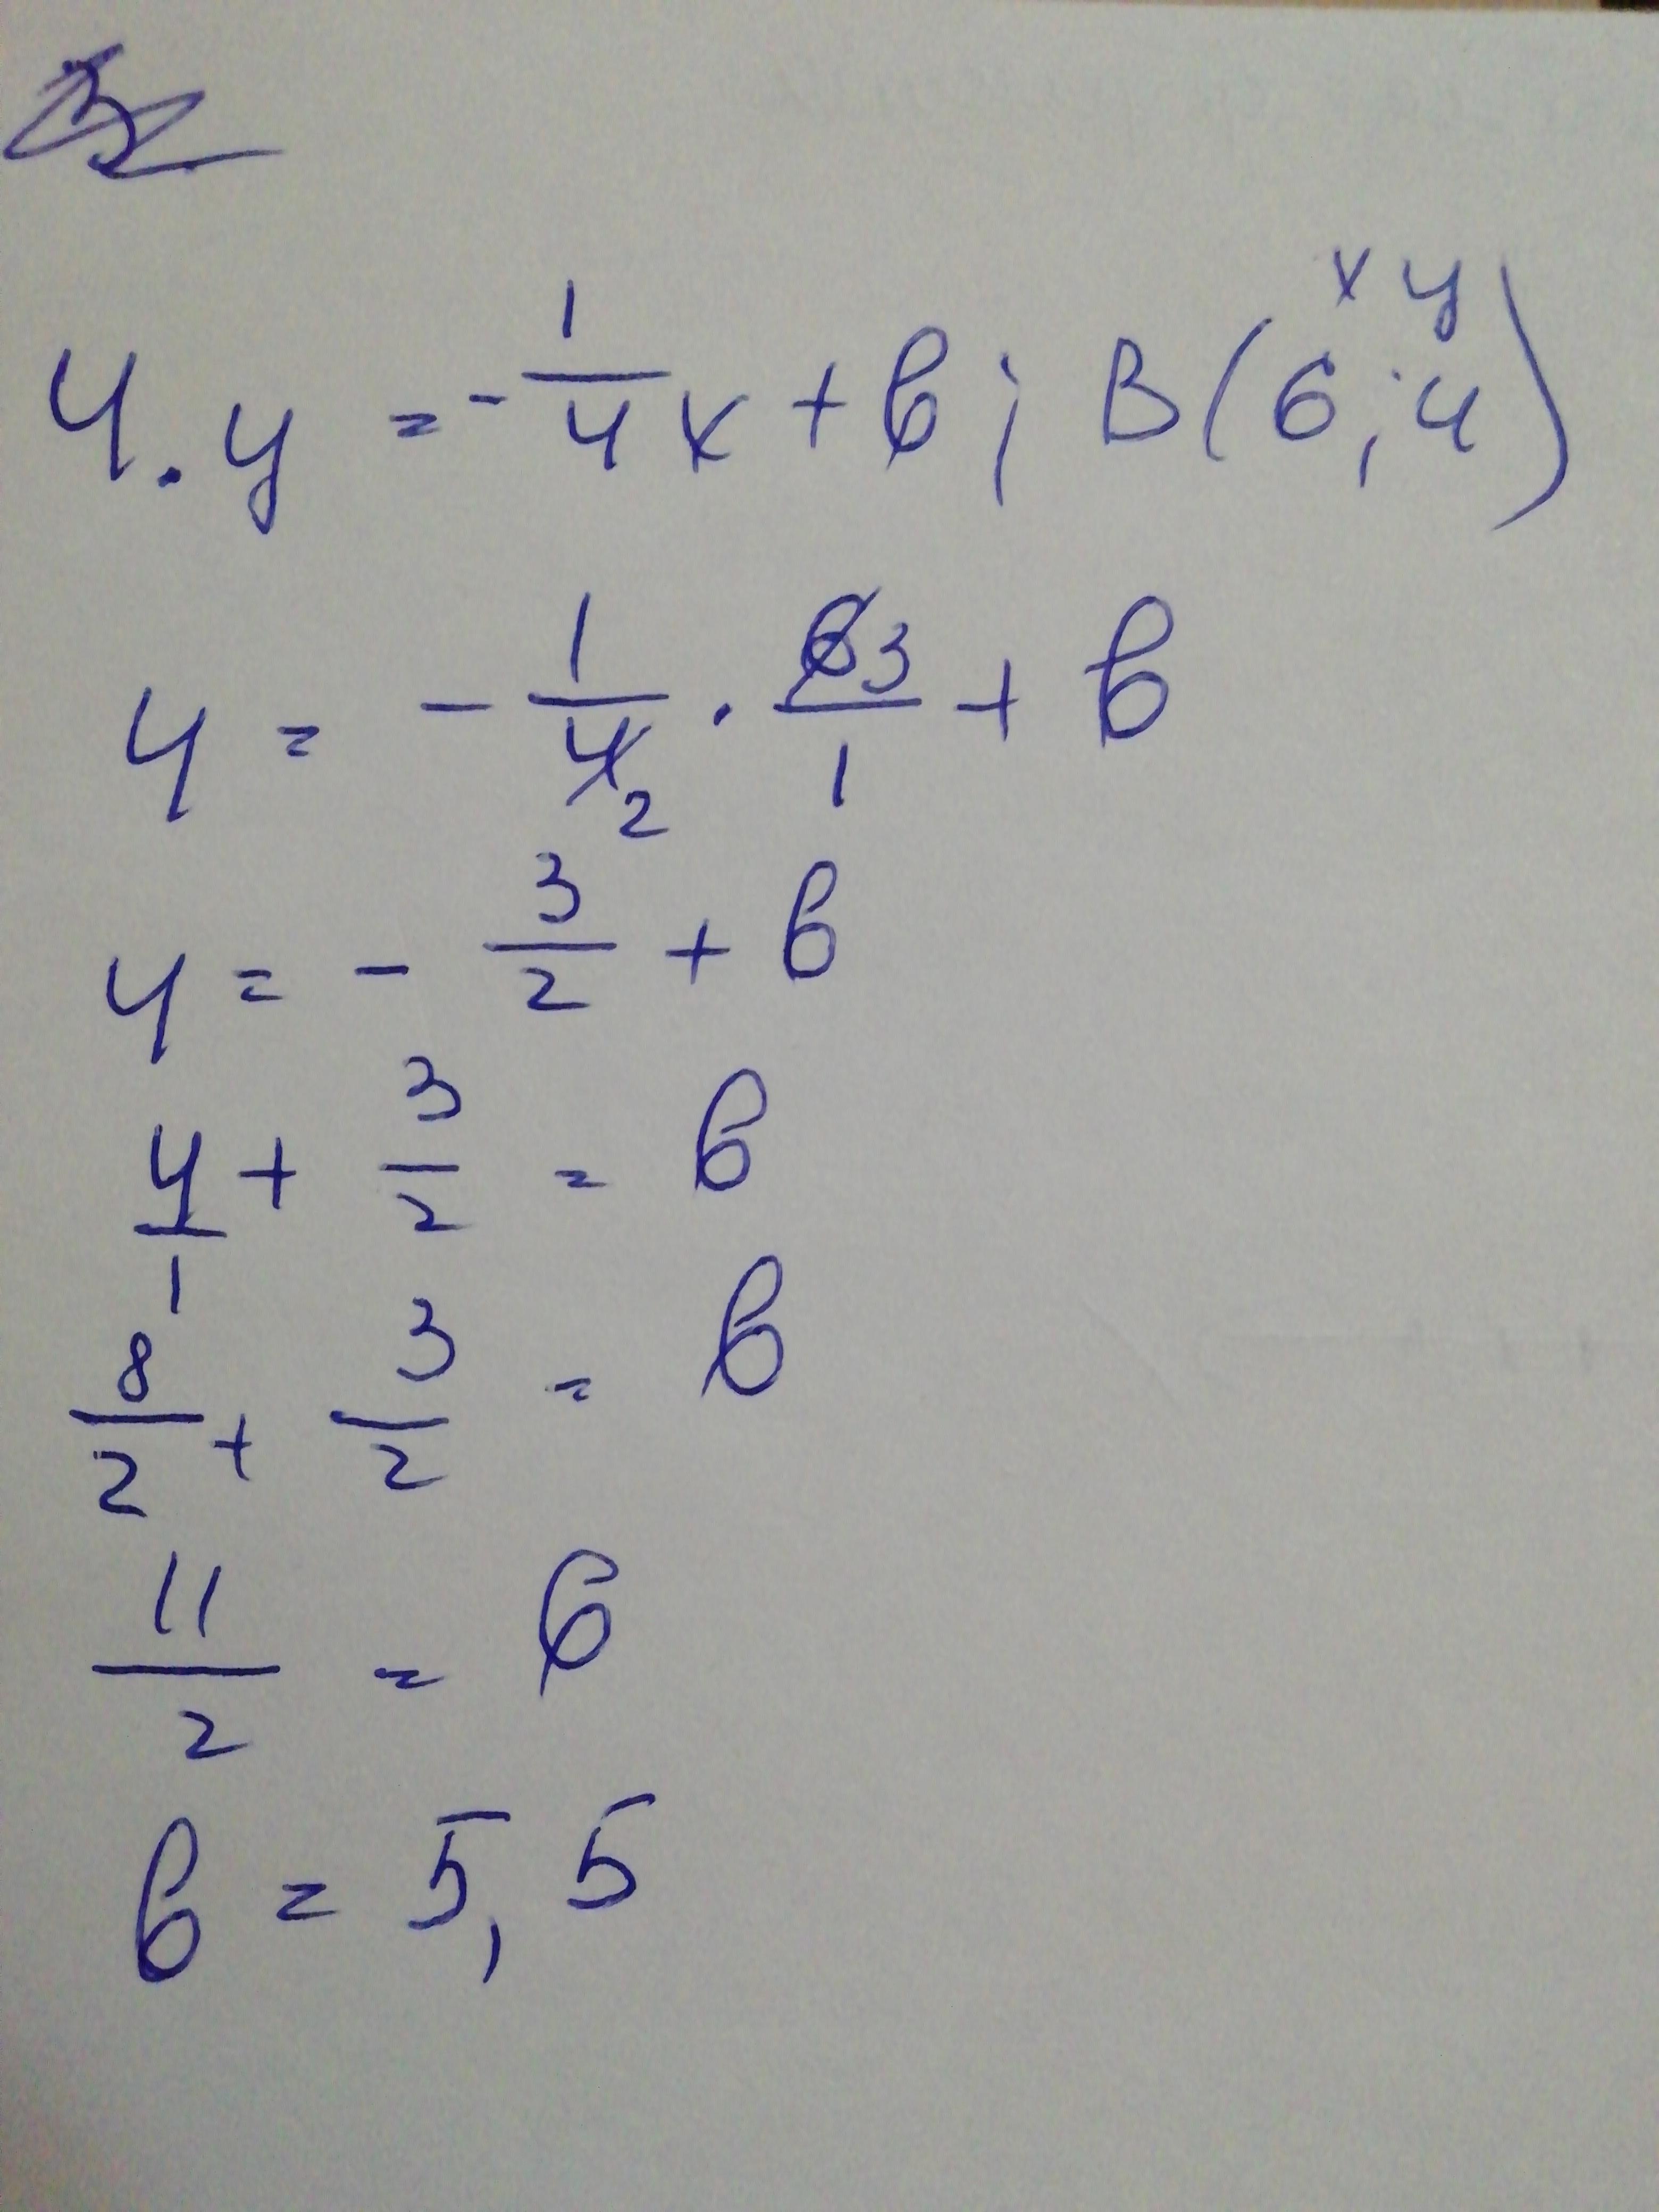 x y
4. y = -1/4 x + b; B(6; 4)
4 = - 1/4 2 · 6 3/1 + b
4 = - 3/2 + b
4/1 + 3/2 = b
8/2 + 3/2 = b
11/2 = b
b = 5,5